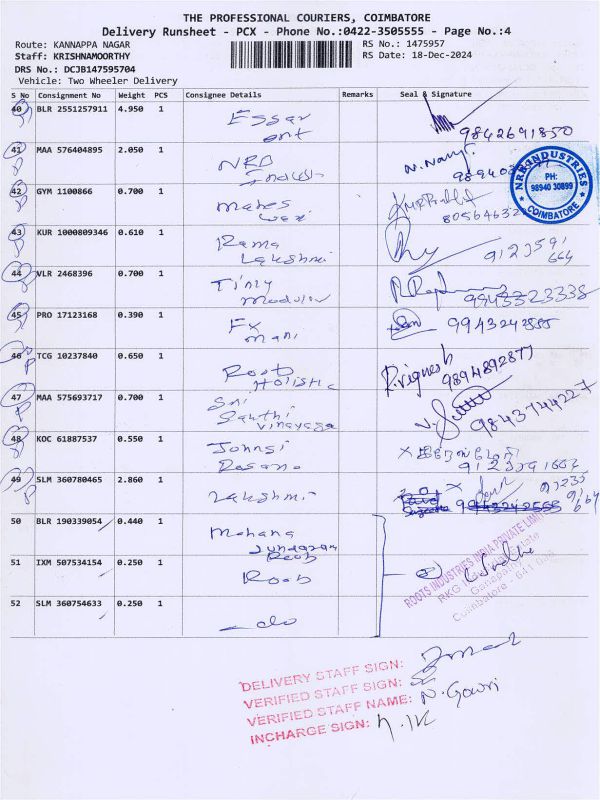 THE PROFESSIONAL COURIERS, COIMBATORE
Delivery Runsheet - PCX - Phone No.:0422-3505555 - Page No.:4
Route: KANNAPPA NAGAR RS No.: 1475957
Staff: KRISHNAMOORTHY RS Date: 18-Dec-2024
DRS No.: DCJB147595704
Vehicle: Two Wheeler Delivery
S No Consignment No Weight PCS Consignee Details Remarks Seal & Signature
40 BLR 2551257911 4.950 1 Essar
ent 9842691850
41 MAA 576404895 2.050 1 NRB
42 GYM 1100866 0.700 1 Mahes
43 KUR 1000809346 0.610 1 Rama
Lakshmi
44 VLR 2468396 0.700 1 Tiny
Modular 9943323338
45 PRO 17123168 0.390 1 Fx
Mani 9943242555
46 TCG 10237840 0.650 1 Roots
Holistic R.vignesh 9894892877
47 MAA 575693717 0.700 1 Sri
Santhi
vinayaga 9843744227
48 KOC 61887537 0.550 1 Johnsi
49 SLM 360780465 2.860 1 Lakshmi
50 BLR 190339054 0.440 1 Mohana
Sundaram
51 IXM 507534154 0.250 1 Roots
52 SLM 360754633 0.250 1 do
NRB INDUSTRIES
PH:
98940 30899
COIMBATORE
ROOTS INDUSTRIES INDIA PRIVATE LIMITED
RKG Industrial Estate
Ganapathy
Coimbatore - 641 006
DELIVERY STAFF SIGN:
VERIFIED STAFF SIGN:
VERIFIED STAFF NAME: N. Gowri
INCHARGE SIGN: